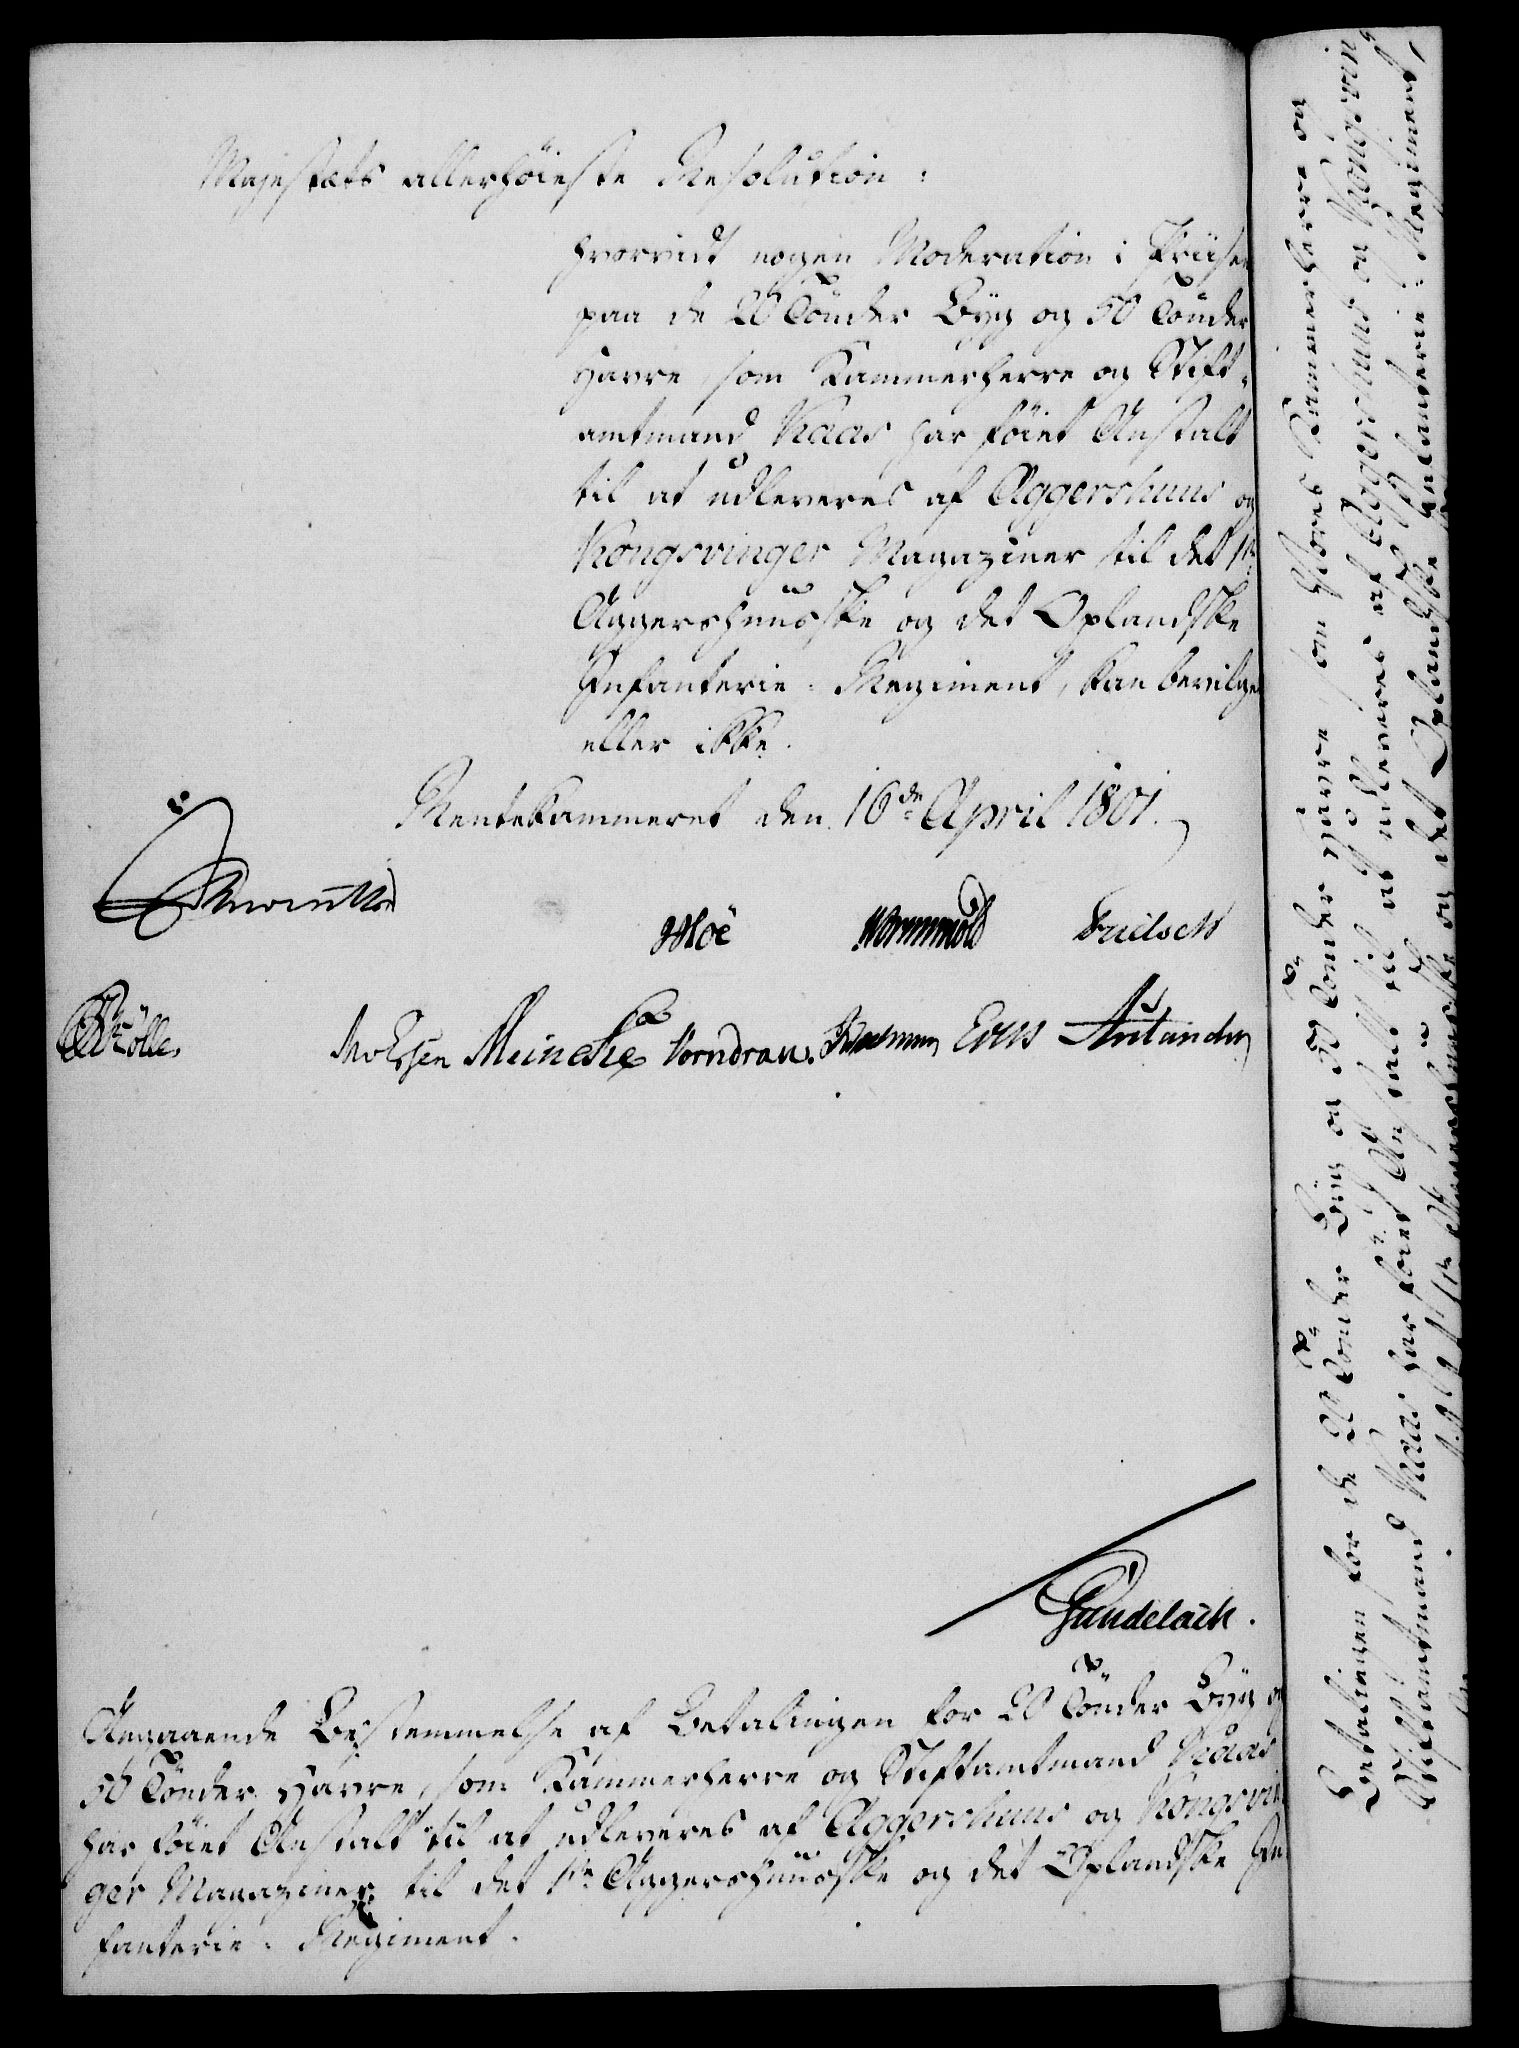 Majestæts allerhöieste Resolution:
hvorvidt nogen Moderation i Priisen
paa de 20 Tönder Byg og 50 Tönder
Havre, som Kammerherre og Stift-
amtmand Kaas har föiet Anstalt
til at udleveres af Aggershuus og
Kongsvinger Magaziner til det 1te
Aggershuusske og det Oplandske
Infanterie-Regiment, kan bevilges
eller ikke.
Rentekammeret den 16de April 1801.
Moë Wormskiold
Meincke Vorndran Evers
Gundelach.
Angaaende Bestemmelse af Betalingen for 20 Tönder Byg og
50 Tönder Havre, som Kammerherre og Stiftamtmand Kaas
har föiet Anstalt til at udleveres af Aggershuus og Kongsvin
ger Magaziner til det 1te Aggershuusske og det Oplandske In
fanterie-Regiment.
Betalingen for de 20 Tönder Byg og 50 Tönder Havre, som Stores Kammerherre og
Stiftamtmand Kaas har föiet Anstalt til at udleveres af Aggershuus og Kongsving
det 1te Aggershuusske og det Oplandske Infanterie-Regiment,